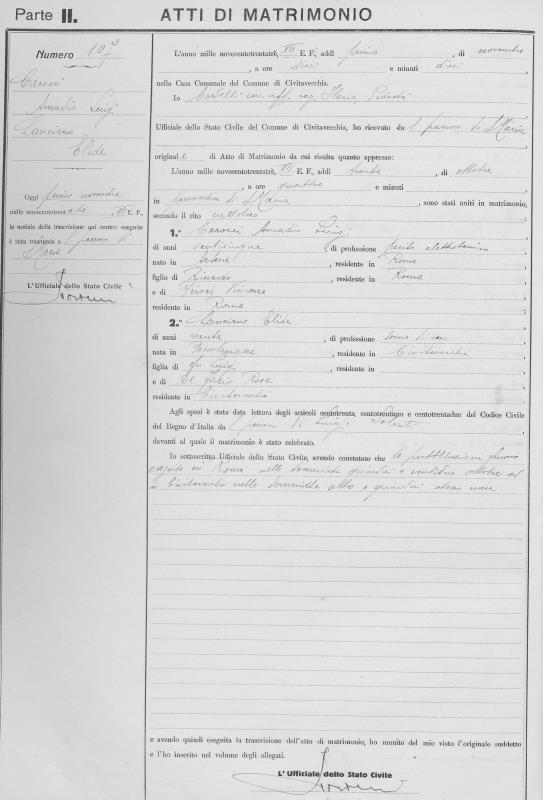 Parte II.
ATTI DI MATRIMONIO
Numero 107
Carocci
Amadio Luigi
Lanciano
Elide
Oggi primo novembre
mille novecentotrentatre, XII E. F.,
la notizia della trascrizione qui contro eseguita
è stata trasmessa a l parroco di
S. Maria
L'Ufficiale dello Stato Civile
L'anno mille novecentotrentatrè, XII E. F., addì primo, di novembre
, a ore dieci e minuti dieci
nella Casa Comunale del Comune di Civitavecchia.
Io Cordelli cav. uff. rag. Ilario, Podestà
Ufficiale dello Stato Civile del Comune di Civitavecchia, ho ricevuto da l parroco di S. Maria
originale di Atto di Matrimonio da cui risulta quanto appresso:
L'anno mille novecentotrentatrè, XII E. F., addì trenta, di ottobre
, a ore quattro e minuti
in parrocchia di S. Maria, sono stati uniti in matrimonio,
secondo il rito cattolico
1.° Carocci Amadio Luigi
di anni venticinque, di professione perito elettrotecnico
nato in Artena, residente in Roma
figlio di Riccardo, residente in Roma
e di Vincenza
residente in Roma
2.° Lanciano Elide
di anni trenta, di professione donna di casa
nata in, residente in Civitavecchia
figlia di fu Luigi, residente in
e di De Fazio Rosa
residente in Civitavecchia
Agli sposi è stata data lettura degli articoli centotrenta, centotrentuno e centotrentadue del Codice Civile
del Regno d'Italia da l parroco Luigi
davanti al quale il matrimonio è stato celebrato.
Io sottoscritto Ufficiale dello Stato Civile, avendo constatato che le pubblicazioni furono
eseguite in Roma nelle domeniche quindici e ventidue ottobre ed
in Civitavecchia nelle domeniche otto e quindici stesso mese
e avendo quindi eseguita la trascrizione dell'atto di matrimonio, ho munito del mio visto l'originale suddetto
e l'ho inserito nel volume degli allegati.
L'Ufficiale dello Stato Civile